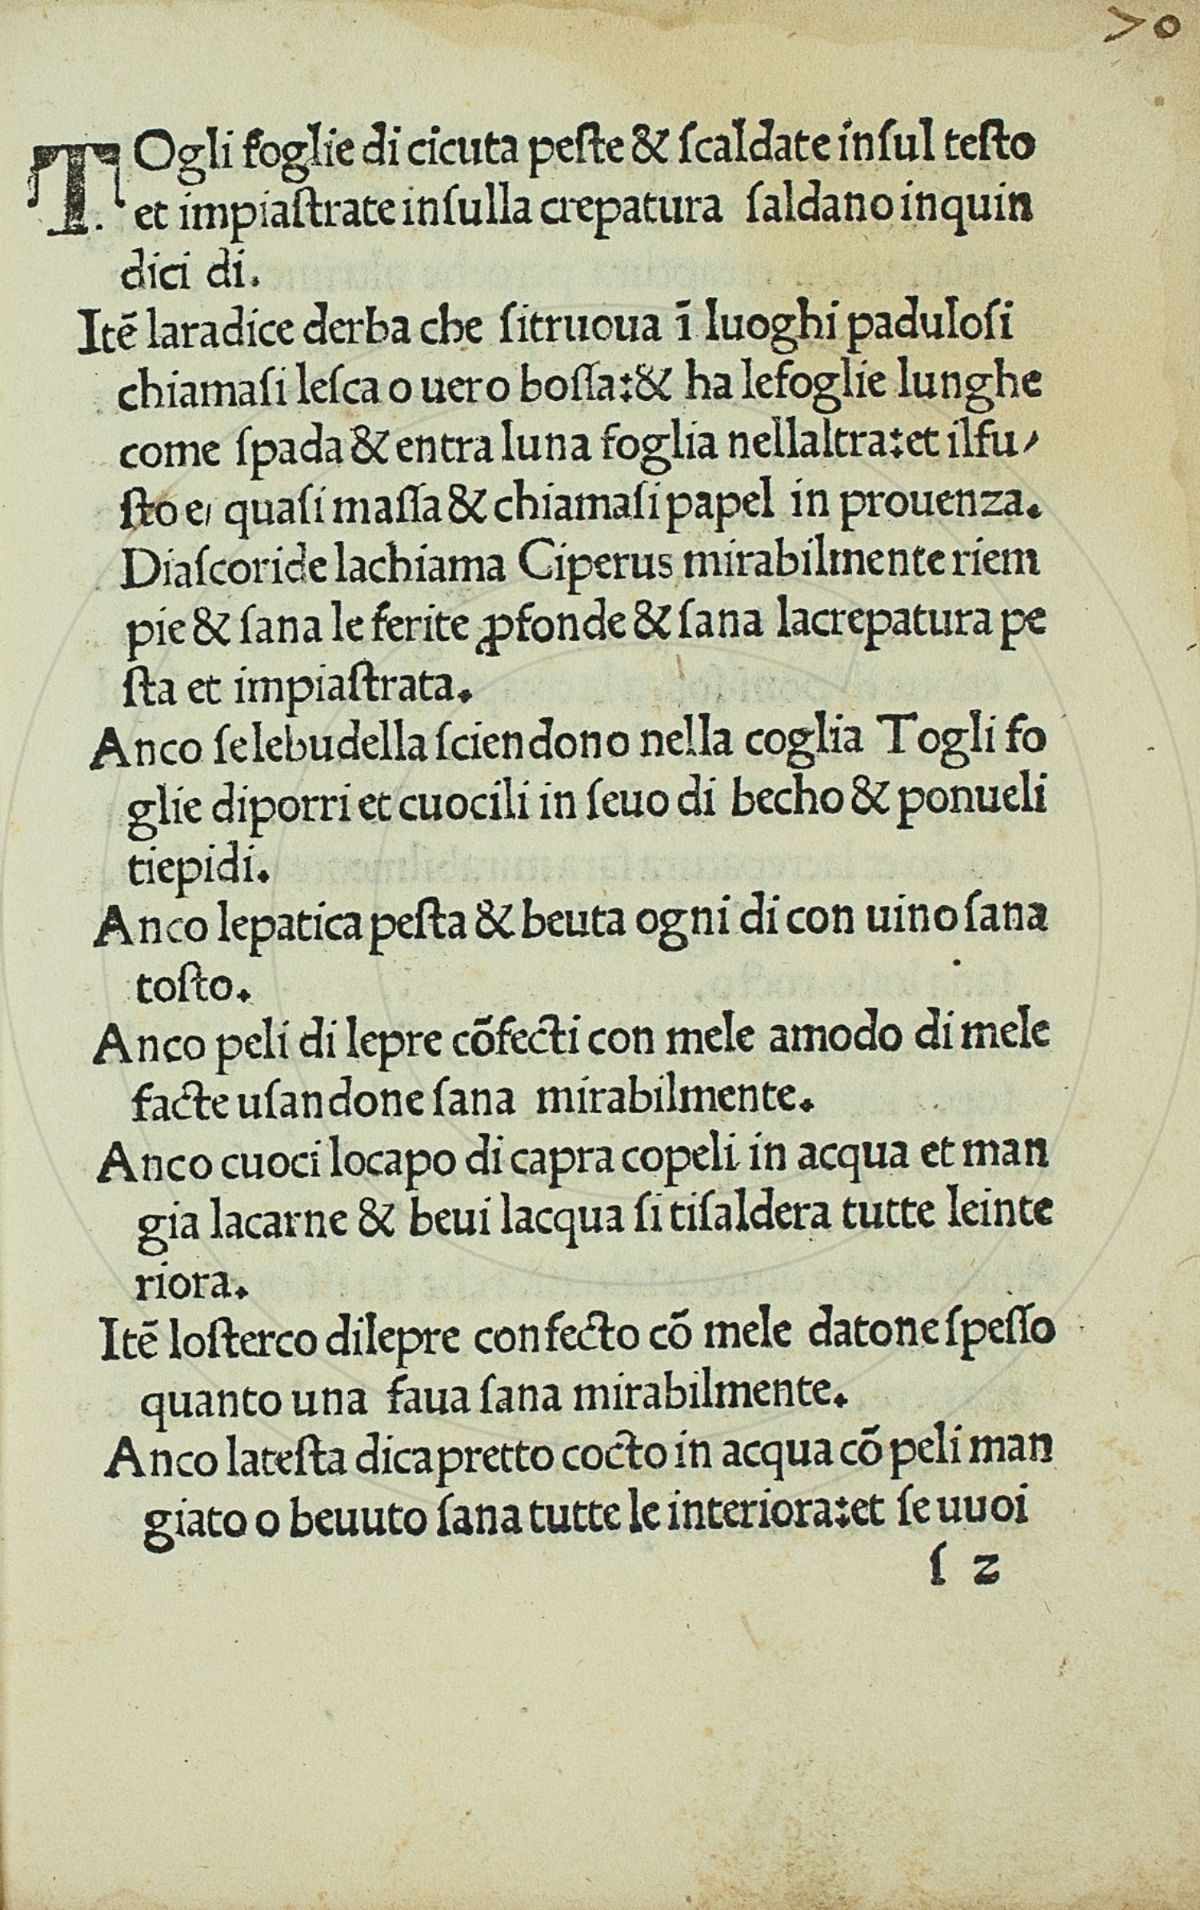 70
TOgli foglie di cicuta peſte & ſcaldate inſul teſto
et impiaſtrate inſulla crepatura ſaldano inquin
dici di.
Itē laradice derba che ſitruoua ī luoghi paduloſi
chiamaſi leſca o uero boſſa:& ha lefoglie lunghe
come ſpada & entra luna foglia nellaltra:et ilfu/
ſto e, quaſi maſſa & chiamaſi papel in prouenza.
Diaſcoride lachiama Ciperus mirabilmente riem
pie & ſana le ferite ꝓfonde & ſana lacrepatura pe
ſta et impiaſtrata.
Anco ſelebudella ſciendono nella coglia Togli fo
glie diporri et cuocili in ſeuo di becho & ponueli
tiepidi.
Anco lepatica peſta & beuta ogni di con uino ſana
toſto.
Anco peli di lepre cōfecti con mele amodo di mele
facte uſandone ſana mirabilmente.
Anco cuoci locapo di capra copeli in acqua et man
gia lacarne & beui lacqua ſi tiſaldera tutte leinte
riora.
Itē loſterco dilepre confecto cō mele datone ſpeſſo
quanto una faua ſana mirabilmente.
Anco lateſta dicapretto cocto in acqua cō peli man
giato o beuuto ſana tutte le interiora:et ſe uuoi
ſ 2